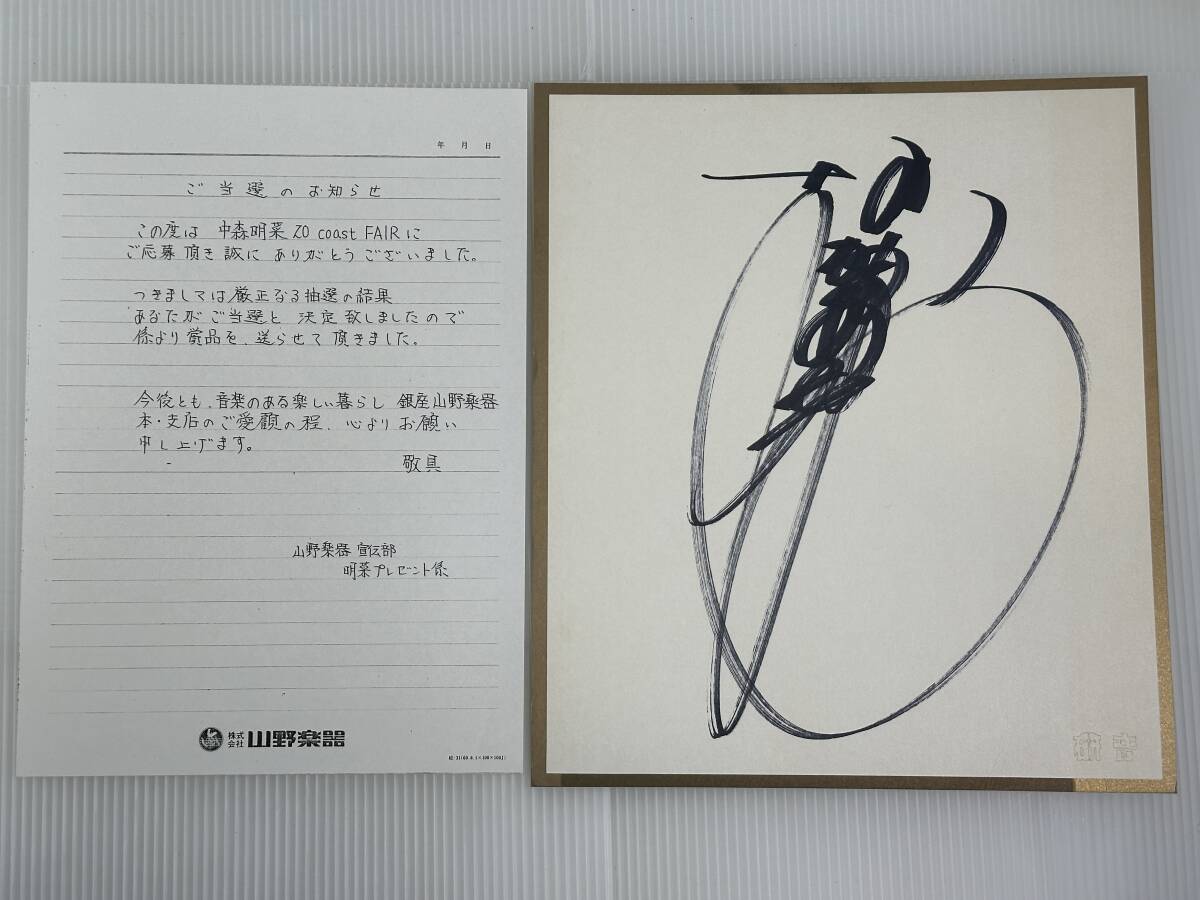 年 月 日
ご当選のお知らせ
この度は 中森明菜 ZO coast FAIRに
ご応募頂き誠に ありがとうございました。
つきましては厳正なる抽選の結果
あなたが ご当選と 決定致しましたので
係より賞品を、送らせて頂きました。
今後とも、音楽のある楽しい暮らし 銀座山野楽器
本・支店のご愛顧の程、心よりお願い
申し上げます。
敬具
山野楽器 宣伝部
明菜プレゼント係
株式会社 山野楽器
研音